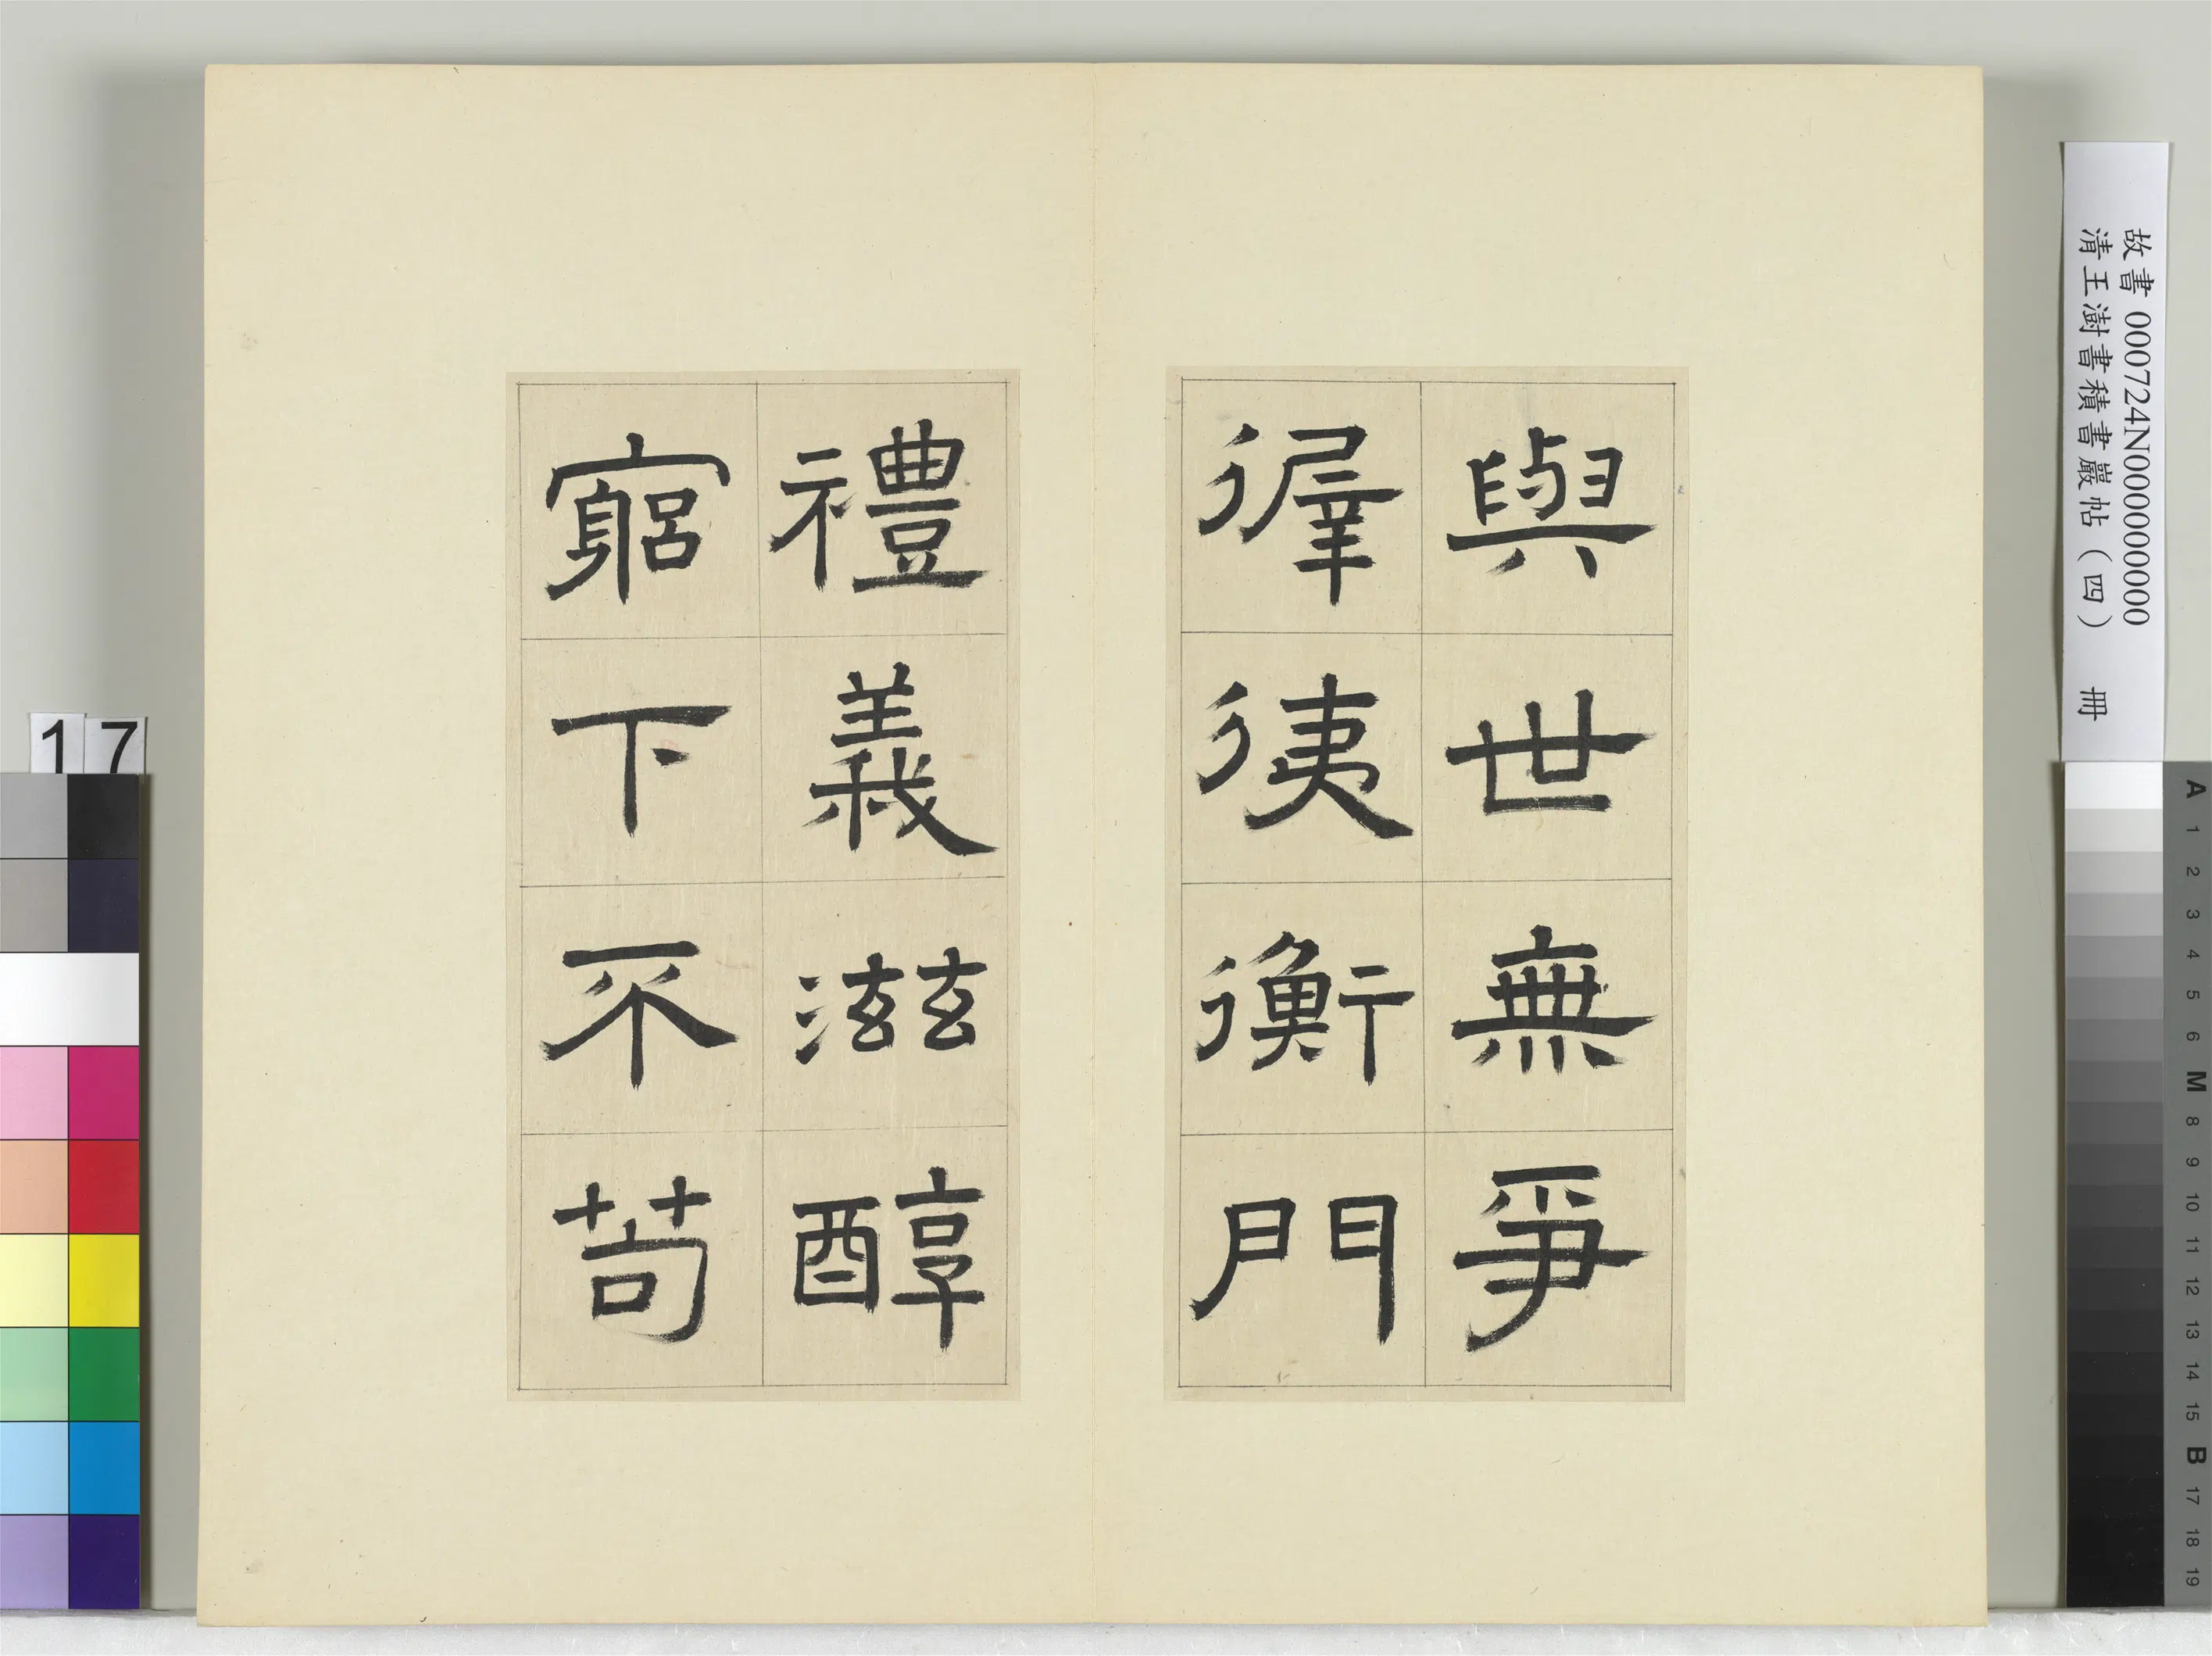 與世無爭
徲㣰衡門
禮義滋醇
窮下不苟
故書 000724N000000000
清王澍書積書巖帖(四) 冊
17
A 1 2 3 4 5 6 M 8 9 10 11 12 13 14 15 B 17 18 19